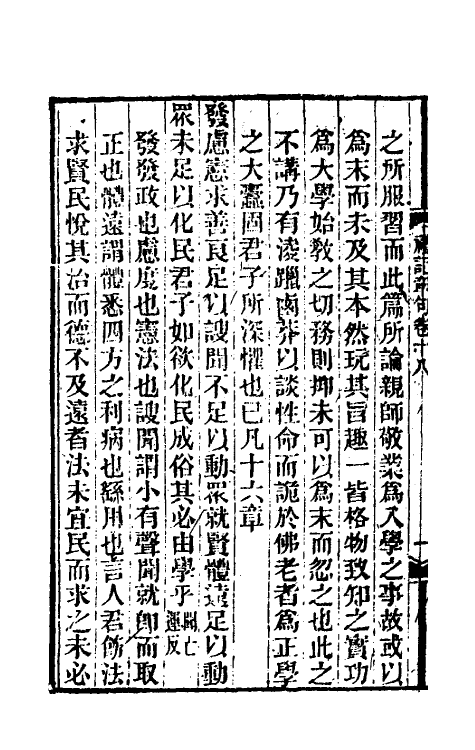 禮記章句卷十八
之所服習而此篇所論親師敬業爲入學之事故或以
爲末而未及其本然玩其旨趣一皆格物致知之實功
爲大學始敎之切務則抑未可以爲末而忽之也此之
不講乃有淩躐鹵莽以談性命而詭於佛老者爲正學
之大蠧固君子所深懼也已凡十六章
發慮憲求善良足以謏聞不足以動眾就賢體遠足以動
眾未足以化民君子如欲化民成俗其必由學乎聞亡運反
發發政也慮度也憲法也謏聞謂小有聲聞就卽而取
正也體遠謂體悉四方之利病也繇用也言人君飭法
求賢民悅其治而德不及遠者法未宜民而求之未必